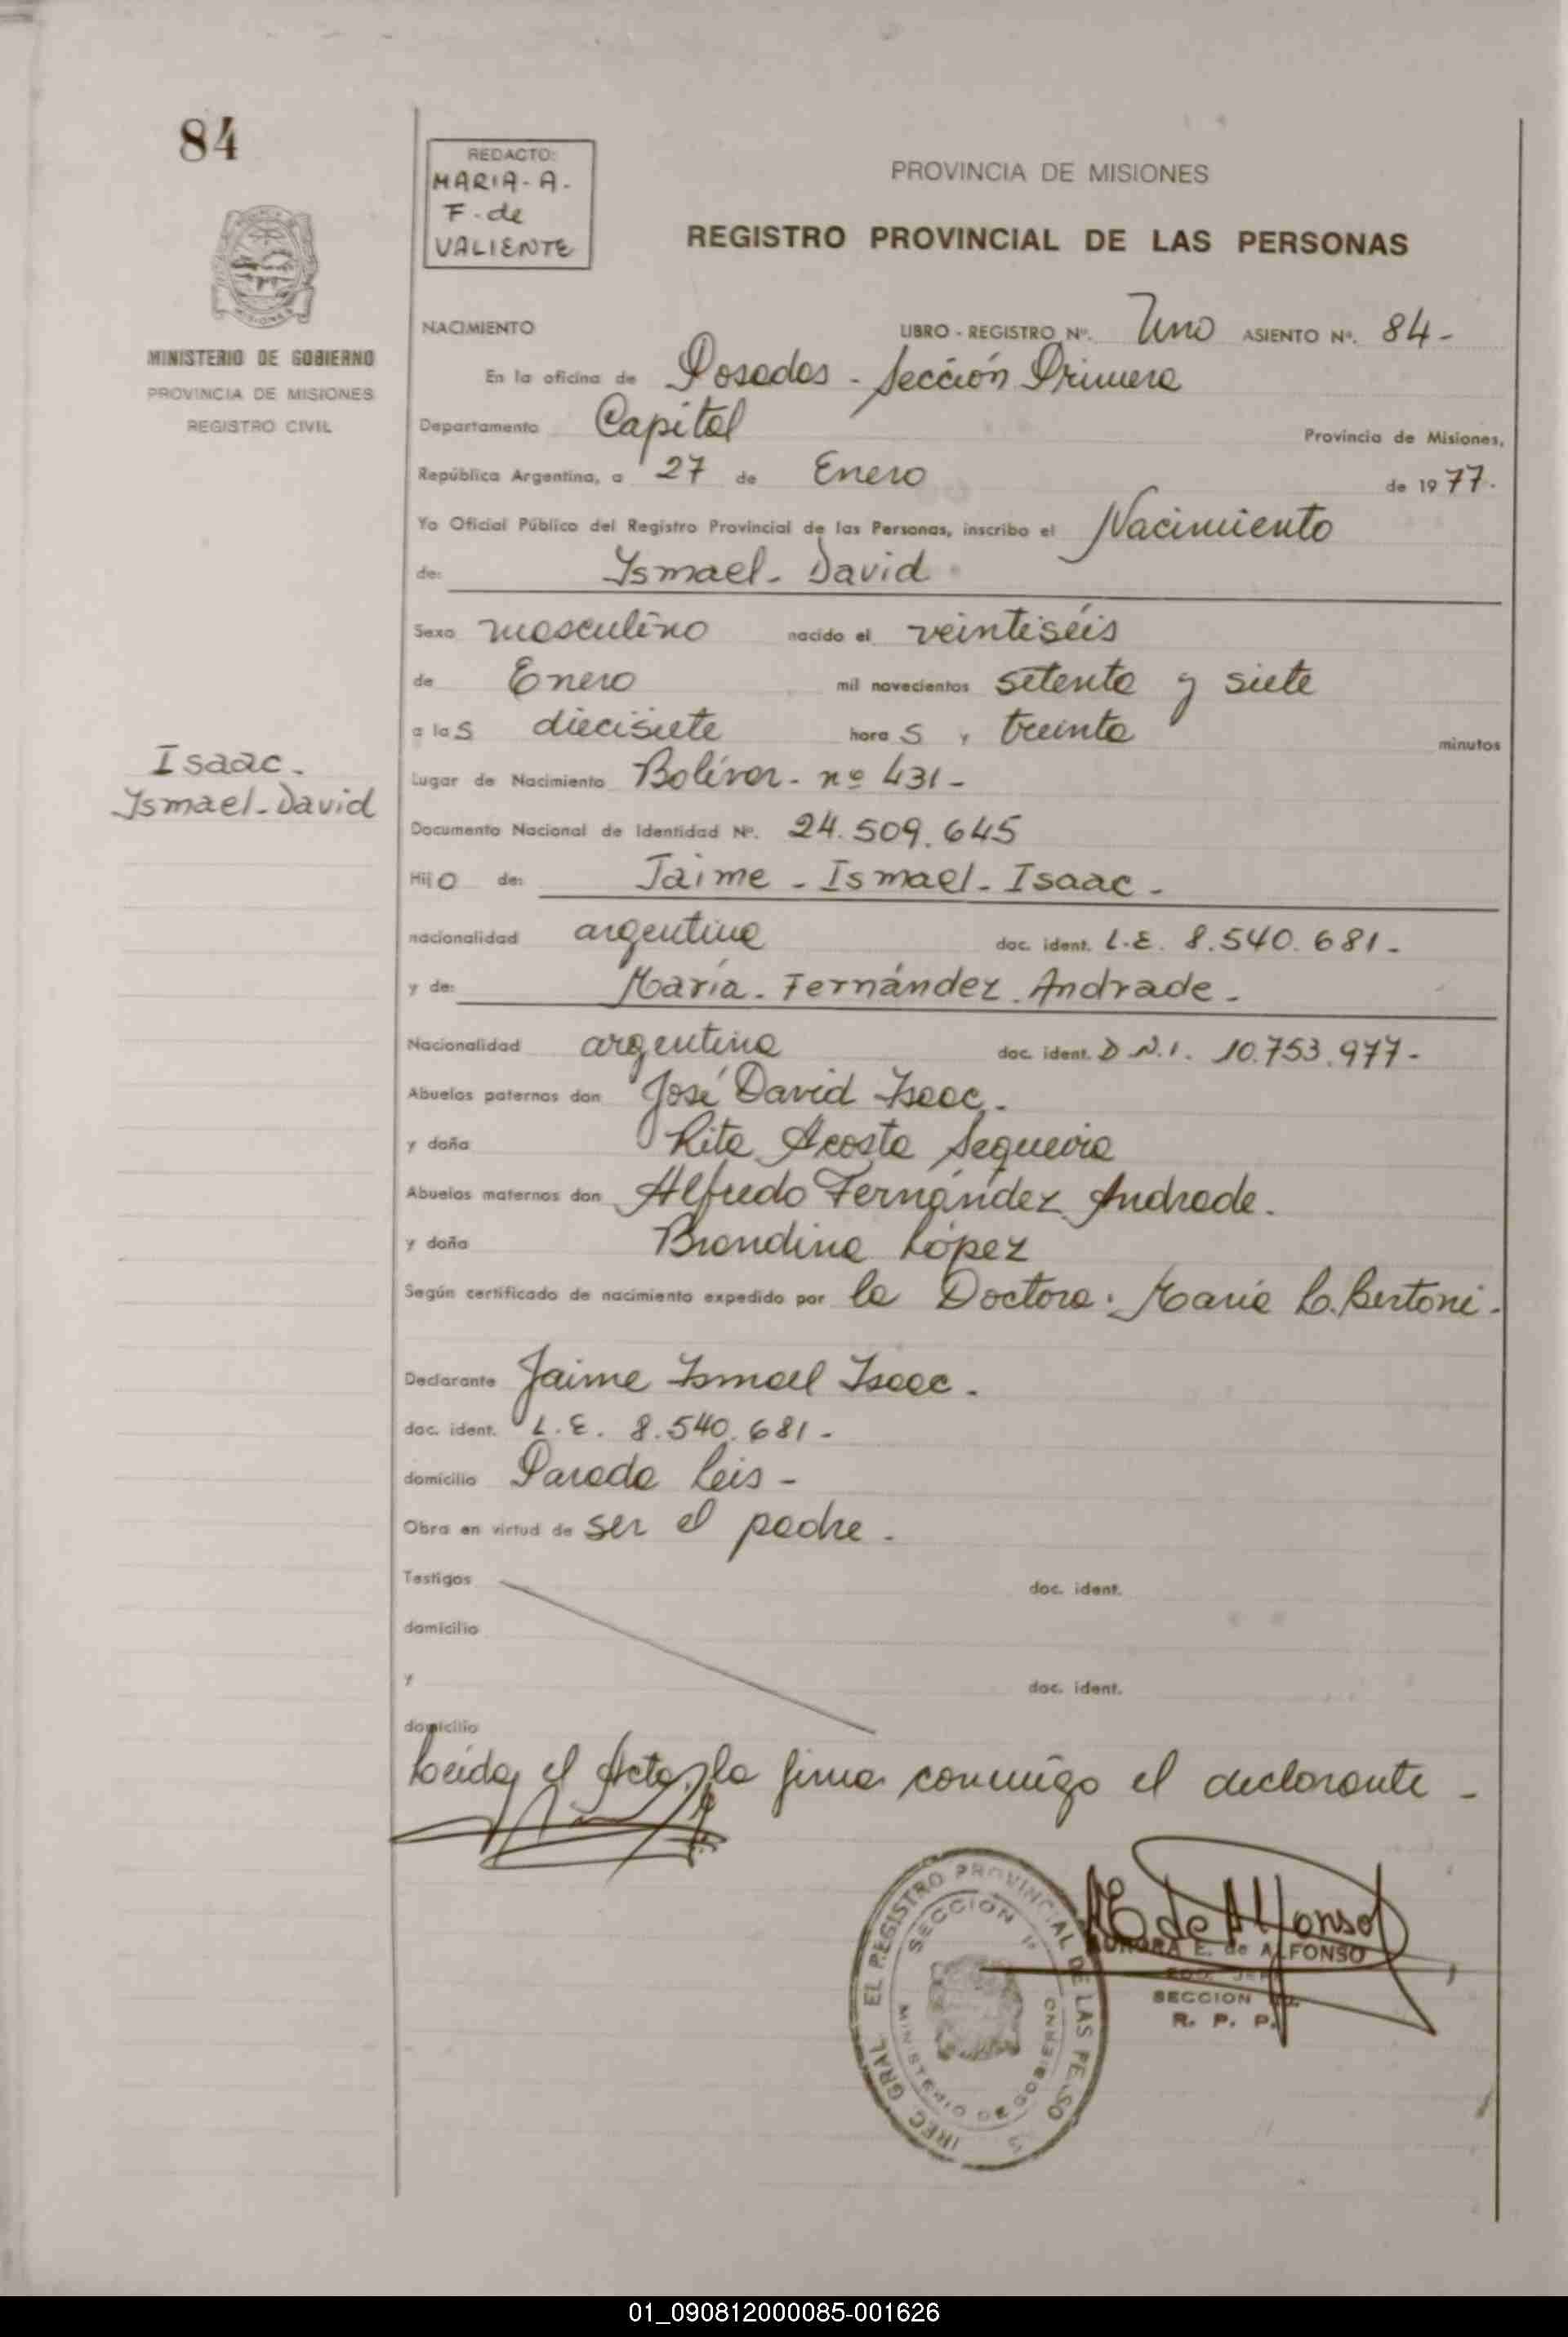 84
REDACTO:
MARIA-A-
F. de
VALIENTE
PROVINCIA DE MISIONES
REGISTRO PROVINCIAL DE LAS PERSONAS
MISIONES
MINISTERIO DE GOBIERNO
PROVINCIA DE MISIONES
REGISTRO CIVIL
NACIMIENTO LIBRO - REGISTRO Nº. Uno ASIENTO Nº. 84-
En la oficina de Posadas - Sección Primera
Departamento Capital Provincia de Misiones,
República Argentina, a 27 de Enero de 1977.
Yo Oficial Público del Registro Provincial de las Personas, inscribo el Nacimiento
de: Ismael - David
Sexo masculino nacido el veintiséis
de Enero mil novecientos setenta y siete
a las diecisiete horas y treinta minutos
Isaac.
Ismael-David
Lugar de Nacimiento Bolívar - nº 431-
Documento Nacional de Identidad Nº. 24.509.645
Hijo de: Jaime - Ismael - Isaac -
nacionalidad argentina doc. ident. L.E. 8.540.681-
y de: María - Fernández Andrade -
Nacionalidad argentina doc. ident. D.N.I. 10.753.977-
Abuelos paternos don José David Isaac.
y doña Rita Acosta Sequeira
Abuelos maternos don Alfredo Fernández Andrade.
y doña Brondina López
Según certificado de nacimiento expedido por la Doctora. María L. Bertoni.
Declarante Jaime Ismael Isaac.
doc. ident. L.E. 8.540.681-
domicilio Parada Leis -
Obra en virtud de ser el padre.
Testigos doc. ident.
domicilio
y doc. ident.
domicilio
Leída el Acta, la firma conmigo el declarante -
GRAL. EL REGISTRO PROVINCIAL DE LAS
SECCION 1ª
MINISTERIO DE GOBIERNO
A E de Alfonso
AURORA E. de ALFONSO
SECCION
R. P. P.
01_090812000085-001626